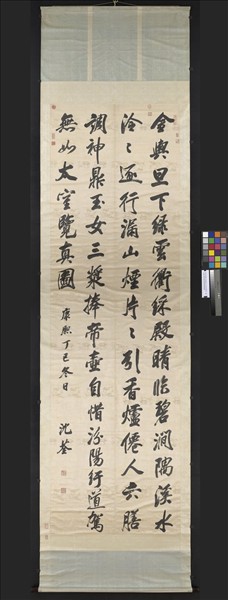 金輿旦下綠雲衢綵殿晴臨碧澗隅溪水
泠〻逐行漏山煙片〻引香爐僊人六膳
調神鼎玉女三漿捧帝壺自惜汾陽行道駕
無如太室覽真圖
康熙丁巳冬日
沈荃